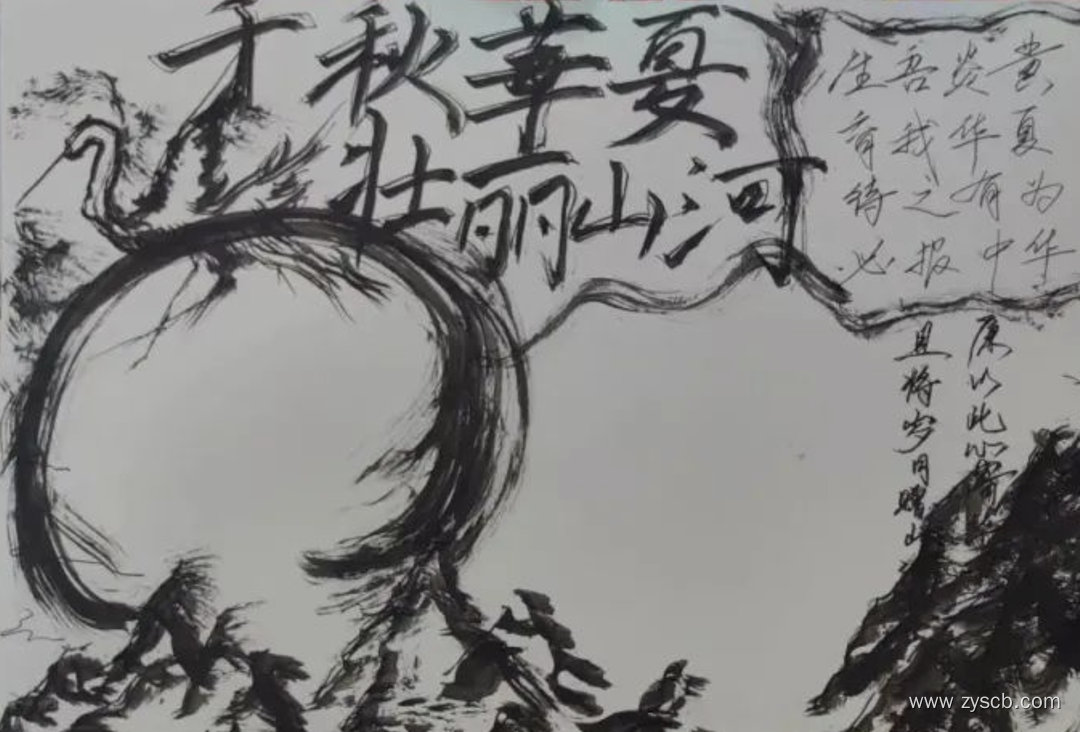 千秋華夏
壮丽山河
生吾炎黄
育我华夏
待之有为
必报中华
原以此心寄
且将岁月赠山
www.zyscb.com